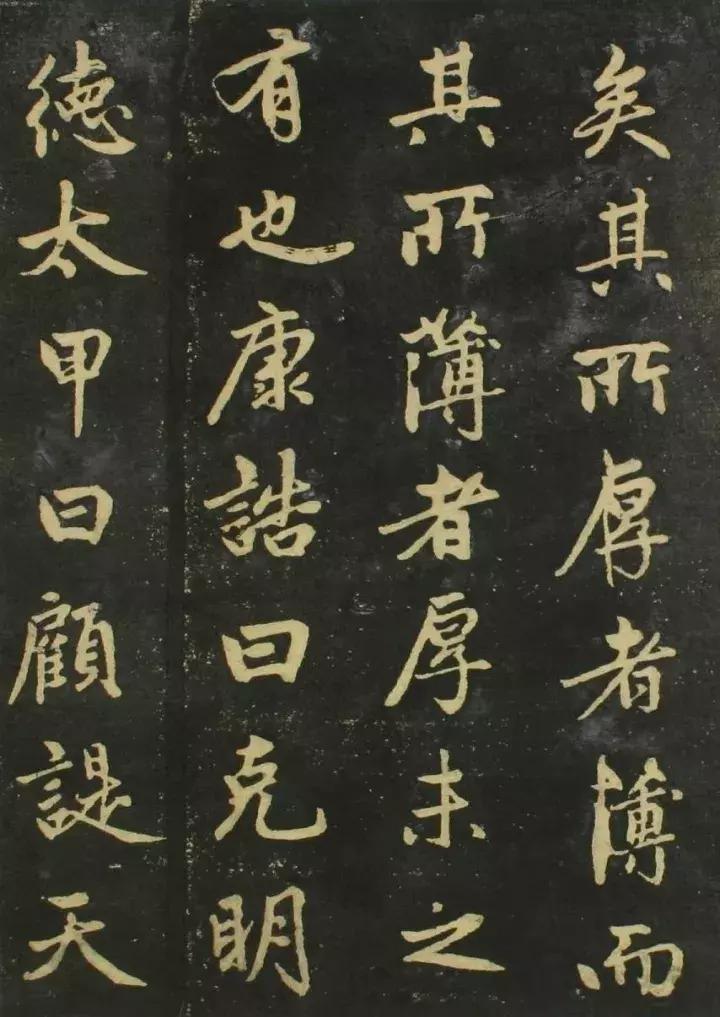 矣其所厚者薄而
其所薄者厚未之
有也康誥曰克明
德太甲曰顧諟天